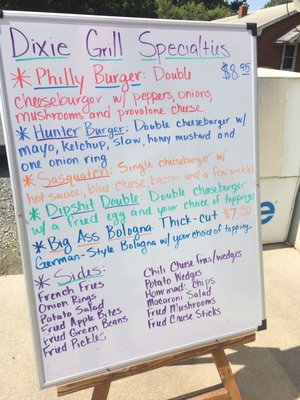 Dixie Grill Specialties
* Philly Burger: Double $8.95
cheeseburger w/ peppers, onions,
mushrooms and provolone cheese
* Hunter Burger: Double cheeseburger w/
mayo, ketchup, slaw, honey mustard and
one onion ring
* Sasquatch: Single cheeseburger w/
hot sauce, blue cheese, bacon and a few pickles
* Dipshit Double: Double cheeseburger
w/ a fried egg and your choice of toppings
* Big Ass Bologna: Thick-cut $7.50
German-Style Bologna w/ your choice of toppings
* Sides:
French Fries
Onion Rings
Potato Salad
Fried Apple Bites
Fried Green Beans
Fried Pickles
Chili Cheese Fries/Wedges
Potato Wedges
Homemade Chips
Macaroni Salad
Fried Mushrooms
Fried Cheese Sticks